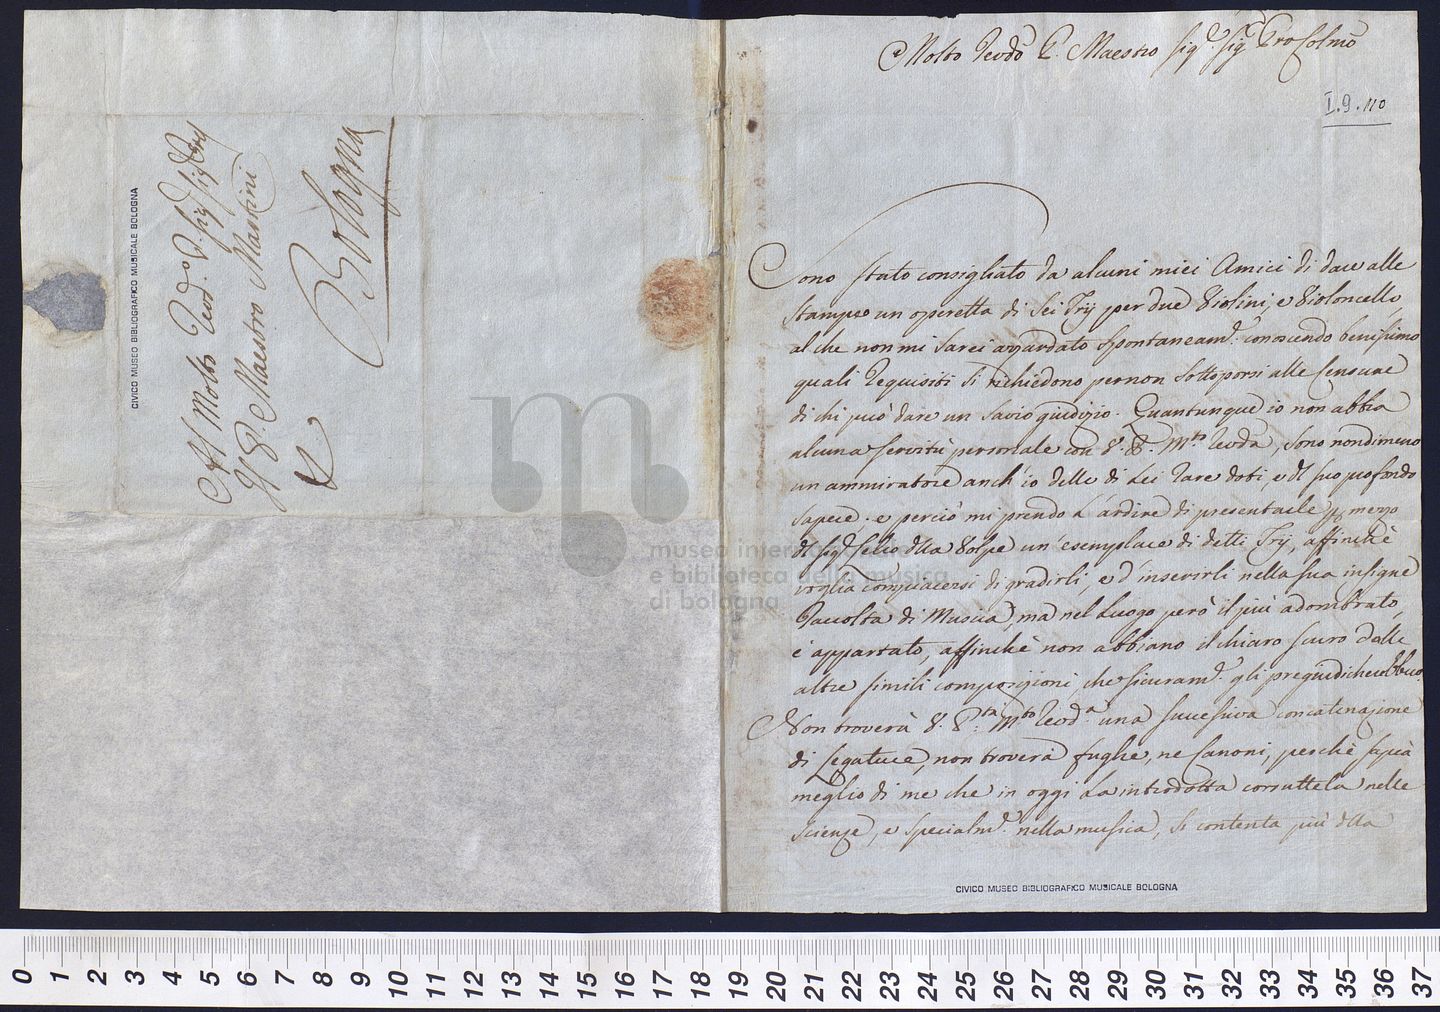 Al Molto Revdo. P. Sig. Sig.
Il P. Maestro Martini
Bologna
CIVICO MUSEO BIBLIOGRAFICO MUSICALE BOLOGNA
Molto Revdo P. Maestro Sig.e Sig.e Pron Colmo
I.9.110
Sono stato consigliato da alcuni miei Amici di dare alle
stampe un operetta di Sei Trij per due Violini, e Violoncello,
al che non mi sarei azardato spontaneamte. conoscendo benissimo
quali Requisiti si richiedono per non sottoporsi alle Censure
di chi può dare un savio giudizio. Quantunque io non abbia
alcuna servitù personale con V. P. Mto Revda, sono nondimeno
un ammiratore anch'io delle di Lei rare doti, e del suo profondo
sapere. e perciò mi prendo l'ardire di presentarle per mezzo
del Sigr Lelio dlla Volpe un'esemplare di detti Trij, affinchè
voglia compiacersi di gradirli, e d'inserirli nella sua insigne
Raccolta di Musica, ma nel Luogo però il più adombrato,
e appartato, affinchè non abbiano il chiaro scuro delle
altre simili composizioni, che sicuramte. gli pregiudicherebbero.
Non troverà V. P.tà Mto Revda una successiva concatenazione
di Legature, non troverà fughe, ne Canoni, perchè saprà
meglio di me che in oggi la introdotta corruttela nelle
scienze, e specialmte. nella musica, si contenta più dlla
CIVICO MUSEO BIBLIOGRAFICO MUSICALE BOLOGNA
museo internazionale
e biblioteca della musica
di bologna
0 1 2 3 4 5 6 7 8 9 10 11 12 13 14 15 16 17 18 19 20 21 22 23 24 25 26 27 28 29 30 31 32 33 34 35 36 37